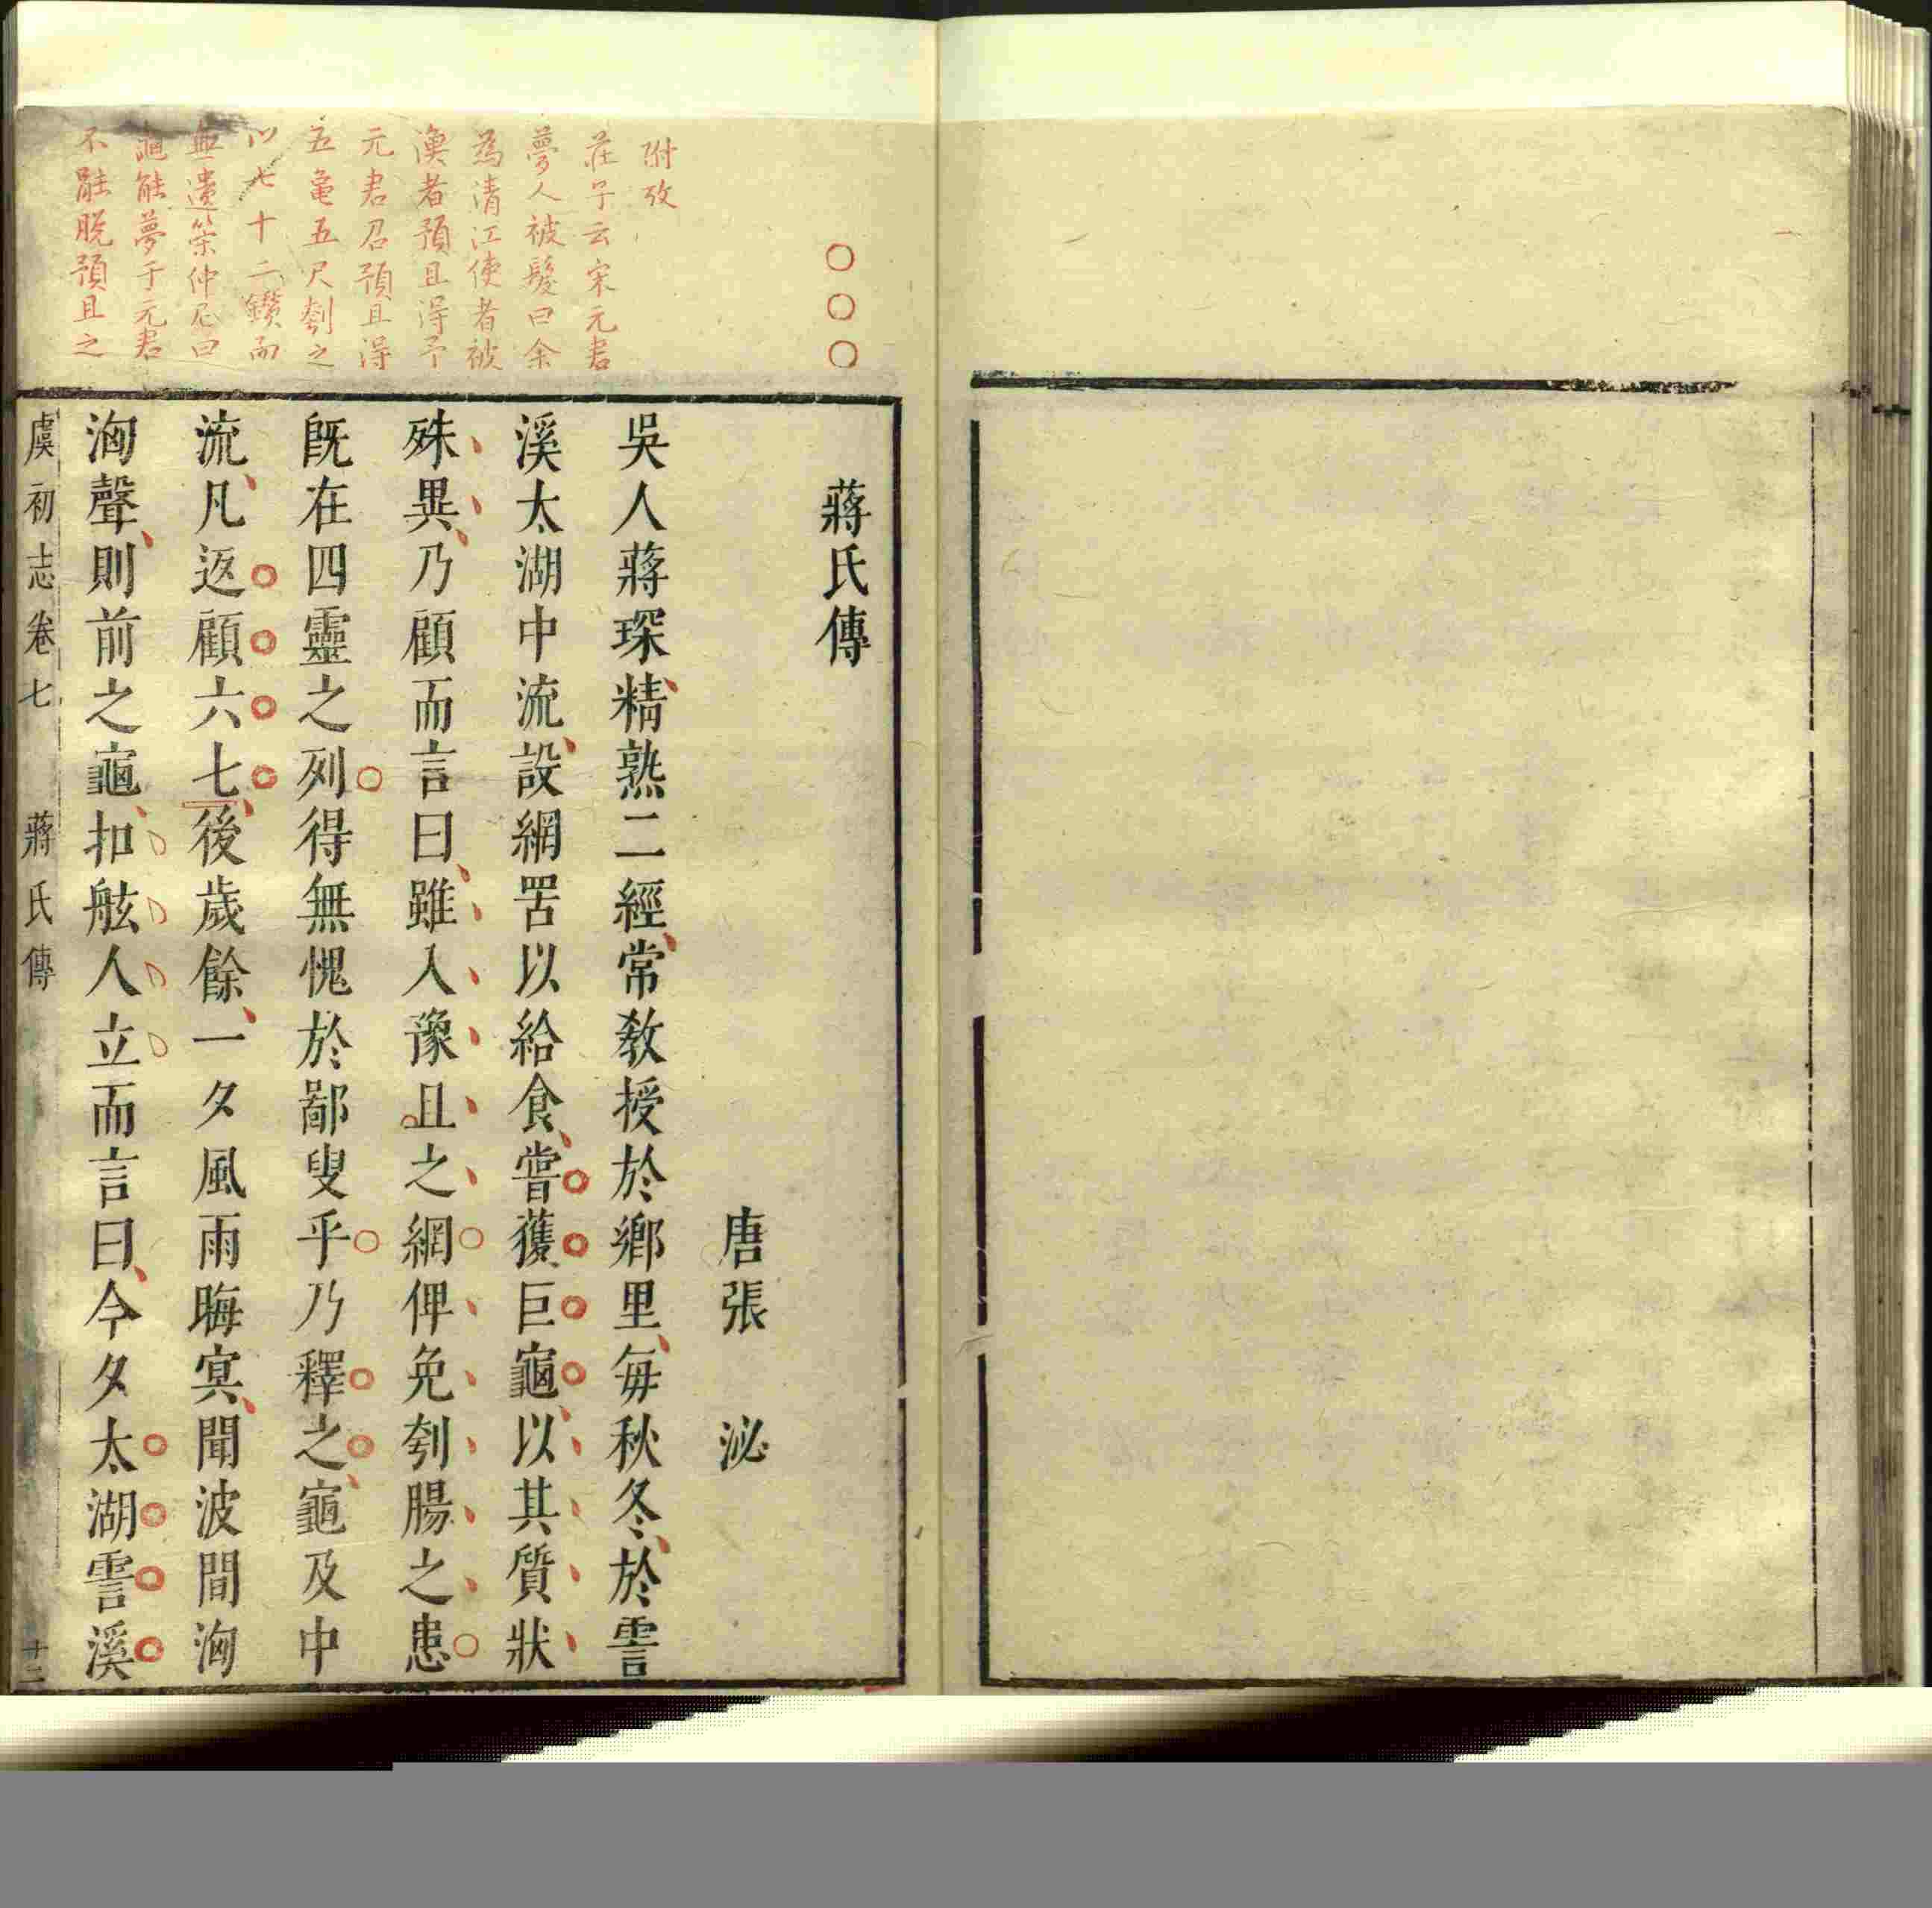 蔣氏傳
唐張泌
吳人蔣琛精熟二經常敎授於鄉里每秋冬於霅
溪太湖中流設網罟以給食嘗獲巨龜以其質狀
殊異乃顧而言曰雖入豫且之網俾免刳腸之患
旣在四靈之列得無愧於鄙叟乎乃釋之龜及中
流凡返顧六七後歲餘一夕風雨晦冥聞波間洶
洶聲則前之龜扣舷人立而言曰今夕太湖霅溪
附攷
莊子云宋元君
夢人被髮曰余
為清江使者被
漁者預且得予
元君召預且得
五龜五尺刳之
以七十二鑚而
無遺筞仲尼曰
龜能夢于元君
不能脫預且之
虞初志卷七 蔣氏傳 十二